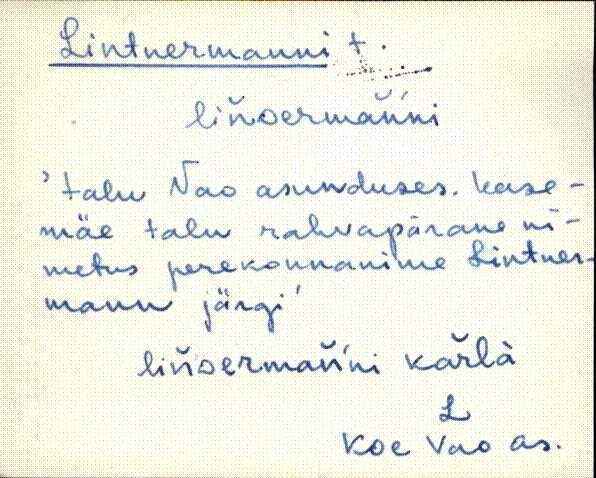 Lintnermanni t.
liňdermaňńi
'talu Vao asunduses. Kase-
mäe talu rahvapärane ni-
metus perekonnanime Lintner-
mann järgi'
liňdermaňńi kařlà
L
Koe Vao as.